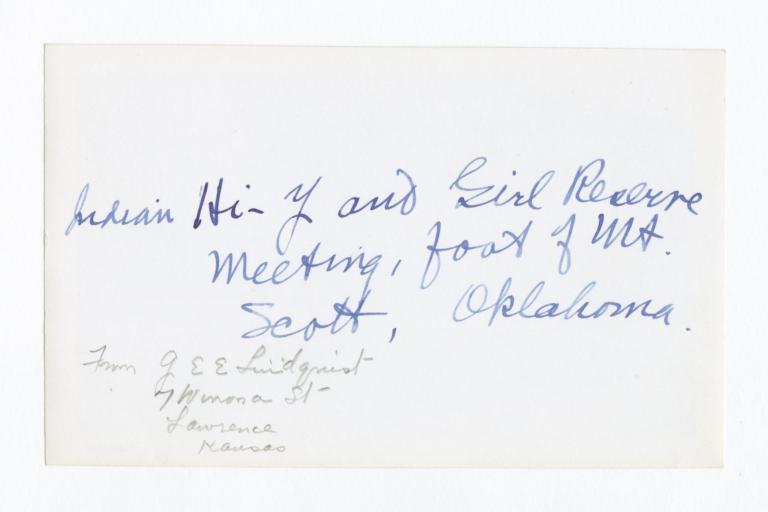 Indian Hi-Y and Girl Reserve
Meeting, foot of Mt.
Scott, Oklahoma.
From G E E Lindquist
7 Winona St
Lawrence
Kansas